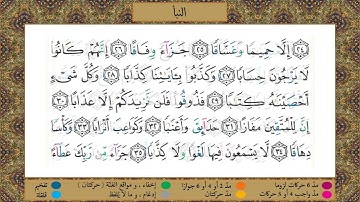 النبأ
٢٤ إِلَّا حَمِيمًا وَغَسَّاقًا ٢٥ جَزَآءً وِفَاقًا ٢٦ إِنَّهُمْ كَانُوا۟
لَا يَرْجُونَ حِسَابًا ٢٧ وَكَذَّبُوا۟ بِـَٔايَـٰتِنَا كِذَّابًا ٢٨ وَكُلَّ شَىْءٍ
أَحْصَيْنَـٰهُ كِتَـٰبًا ٢٩ فَذُوقُوا۟ فَلَن نَّزِيدَكُمْ إِلَّا عَذَابًا ٣٠
إِنَّ لِلْمُتَّقِينَ مَفَازًا ٣١ حَدَآئِقَ وَأَعْنَـٰبًا ٣٢ وَكَوَاعِبَ أَتْرَابًا ٣٣ وَكَأْسًا
دِهَاقًا ٣٤ لَّا يَسْمَعُونَ فِيهَا لَغْوًا وَلَا كِذَّٰبًا ٣٥ جَزَآءً مِّن رَّبِّكَ عَطَآءً
مدّ ٦ حركات لزوما
مدّ ٢ أو ٤ أو ٦ جوازا
إخفاء، ومواقع الغنّة (حركتان)
تفخيم
مدّ واجب ٤ أو ٥ حركات
مدّ حركتان
إدغام، وما لا يُلفظ
قلقلة